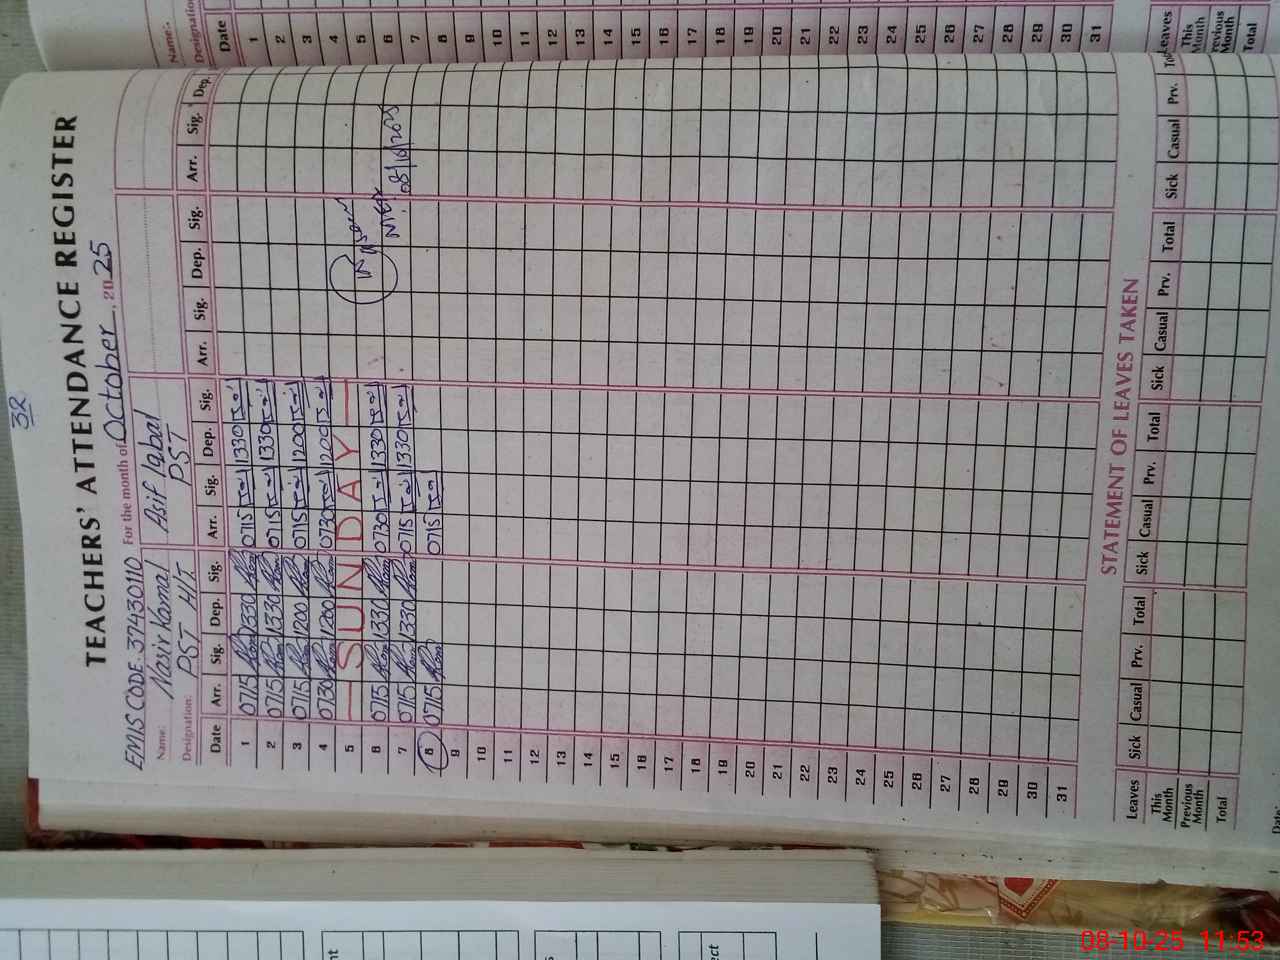 32
TEACHERS' ATTENDANCE REGISTER
EMIS CODE 37430110 For the month of October, 2025
Name: Nasir Kamal Asif Iqbal
Designation: PST H/T PST
Date Arr. Sig. Dep. Sig. Arr. Sig. Dep. Sig. Arr. Sig. Dep. Sig. Arr. Sig. Dep.
1 0715 1330 0715 1330
2 0715 1330 0715 1330
3 0715 1200 0715 1200
4 0730 1200 0730 1200
5 SUNDAY
6 0715 1330 0730 1330
7 0715 1330 0715 1330 08/10/2025
8 0715 0715
9
10
11
12
13
14
15
16
17
18
19
20
21
22
23
24
25
26
27
28
29
30
31
STATEMENT OF LEAVES TAKEN
Leaves Sick Casual Prv. Total Sick Casual Prv. Total Sick Casual Prv. Total Sick Casual Prv.
This Month
Previous Month
Total
Date:
Name:
Designation
Date
1
2
3
4
5
6
7
8
9
10
11
12
13
14
15
16
17
18
19
20
21
22
23
24
25
26
27
28
29
30
31
Leaves
This Month
Previous Month
Total
08-10-25 11:53